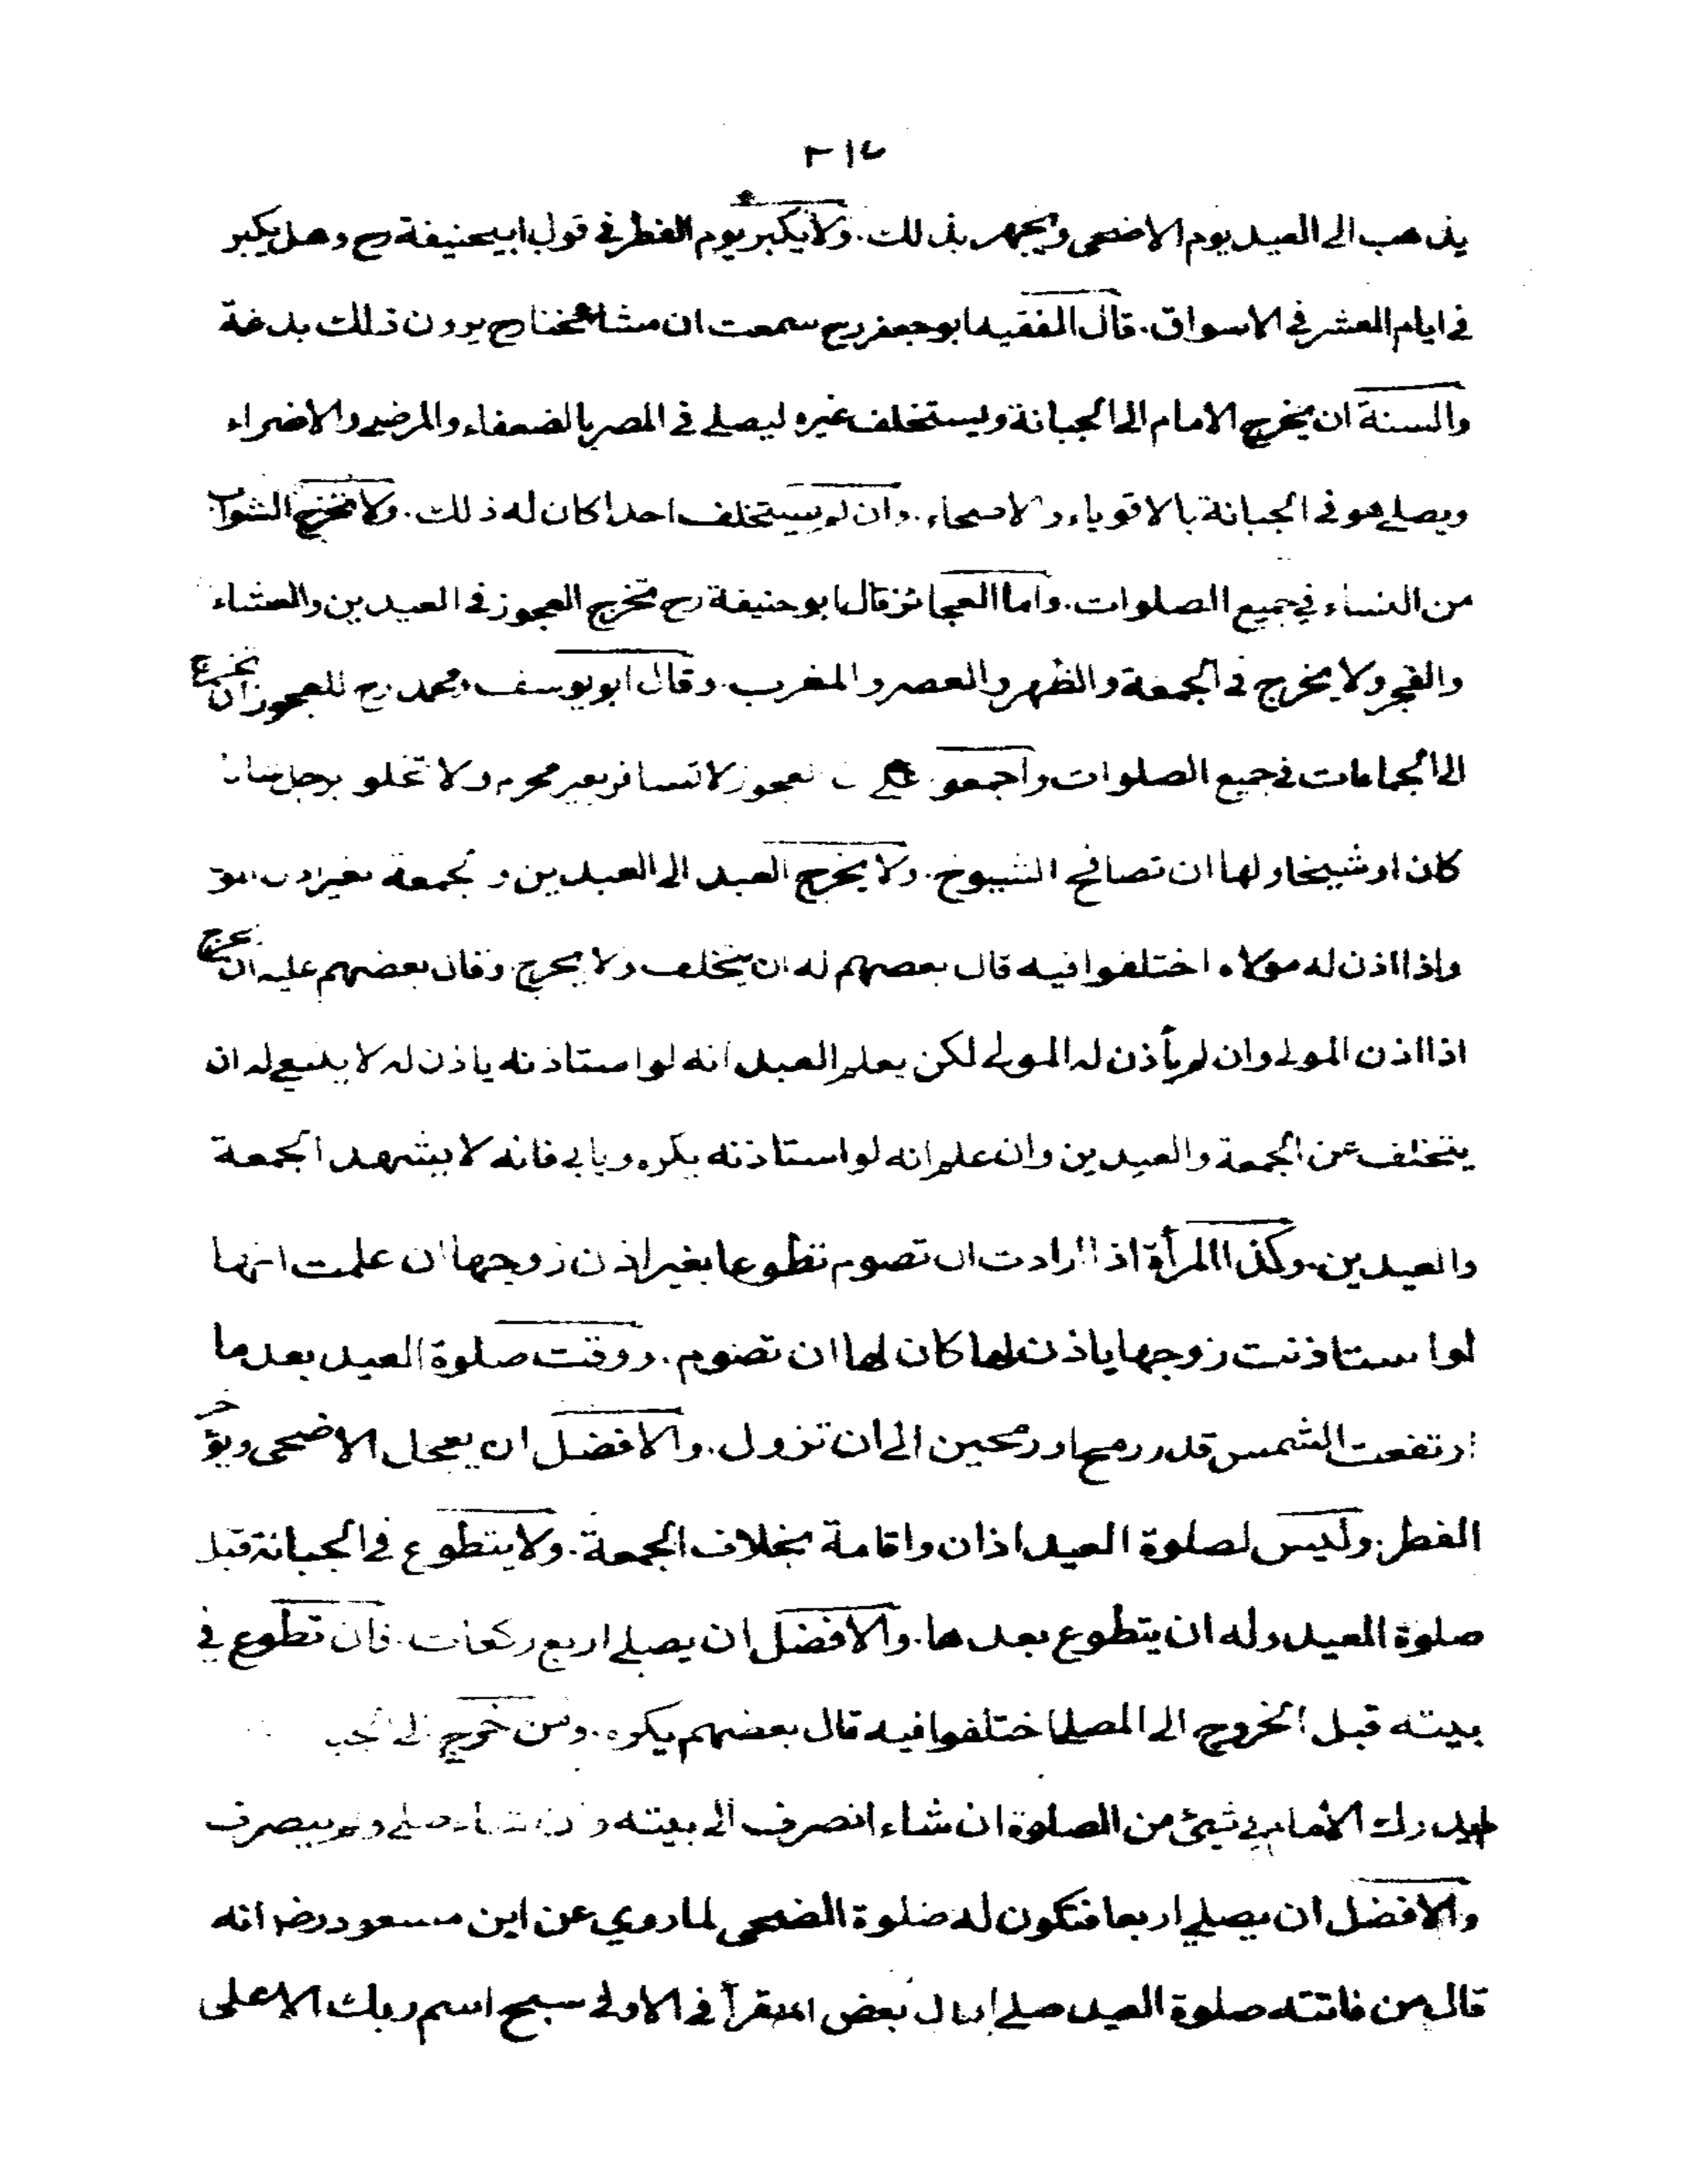 ٢١٧
يذهب الى العيد يوم الاضحى ويجهر بذلك. ولا يكبر يوم الفطر في قول ابيحنيفة رح وهل يكبر
في ايام العشر في الاسواق. قال الفقيه ابو جعفر رح سمعت ان مشائخنا رح يرون ذلك بدعة
والسنة ان يخرج الامام الى الجبانة ويستخلف غيره ليصلي في المصر بالضعفاء والمرضى والاضراء
ويصلي هو في الجبانة بالاقوياء والاصحاء. وان لم يستخلف احدا كان له ذلك. ولا تخرج الشواب
من النساء في جميع الصلوات. واما العجائز قال ابو حنيفة رح تخرج العجوز في العيدين والعشاء
والفجر ولا يخرج في الجمعة والظهر والعصر والمغرب. وقال ابو يوسف ومحمد رح للعجوز ان تخرج
الى الجماعات في جميع الصلوات واجمعو لعجوز لا تسافر بغير محرم ولا تخلو برجل شابا
كان او شيخا ولها ان تصافح الشيوخ. ولا يخرج العبد الى العيدين و لجمعة بغير
واذا اذن له مولاه اختلفوا فيه قال بعضهم له ان يتخلف ولا يخرج وقال بعضهم عليه ان يخرج
اذا اذن المولى وان لم يأذن له المولى لكن يعلم العبد انه لو استاذنه ياذن له لا ينبغي له ان
يتخلف عن الجمعة والعيدين وان علم انه لو استاذنه يكره ويابى فانه لا يشهد الجمعة
والعيدين. وكذا المرأة اذا ارادت ان تصوم تطوعا بغير اذن زوجها ان علمت انها
لو استاذنت زوجها ياذن لها كان لها ان تصوم. ووقت صلوة العيد بعد ما
ارتفعت الشمس قدر رمح او رمحين الى ان تزول. والافضل ان يعجل الاضحى ويؤخر
الفطر. وليس لصلوة العيد اذان واقامة بخلاف الجمعة. ولا يتطوع في الجبانة قبل
صلوة العيد وله ان يتطوع بعدها. والافضل ان يصلي اربع ركعات. فان تطوع في
بيته قبل الخروج الى المصلى اختلفوا فيه قال بعضهم يكره. ومن خرج الى الجب
يدرك الامام في شيئ من الصلوة ان شاء انصرف الى بيته و ان شاء صلى ولم ينصرف
والافضل ان يصلي اربعا فتكون له صلوة الضحى لما روي عن ابن مسعود رض انه
قال من فاتته صلوة العيد صلى بعض يقرأ في الاولى سبح اسم ربك الاعلى